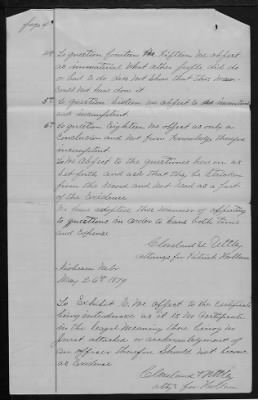 page 4
4th To question fourteen the fifteen we object
as immaterial What other folks did do
or had to do does not show that this man
could not have done it
5th To question sixteen we object to as
and incompetent
6th To question Eighteen we object as only a
conclusion and not from knowledge therefore
incompetent
We object to the questions herein as
set forth and ask that they be stricken
from the record and not read as a part
of the Evidence
We have adopted this manner of objecting
to questions in order to save both time
and expense
Cleveland & Nettley
attorneys for Patrick
Niobrara Nebr
May 26th 1879
To Exhibit E. We object to the certificate
being introduced as it is no certificate
in the legal meaning there being no
Jurat attached or acknowledgement of
an officer therefore should not be
as Evidence
Cleveland & Nettley
attys for